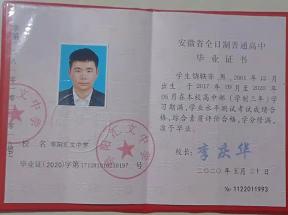 安徽省全日制普通高中
毕业证书
男，2001年12月
出生，于2017年09月至2020年
06月在本校高中部（学制三年）学
习期满，学业水平测试考试成绩合
格，综合素质评价合格，学分修满，
准予毕业。
校名 阜阳汇文中学
校长： 李庆华
毕业证（2020）字第
二〇二〇年五月
№ 1122011993